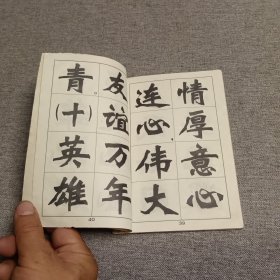 情厚意心
连心,伟大
39
友谊万年
青。(十)英雄
40